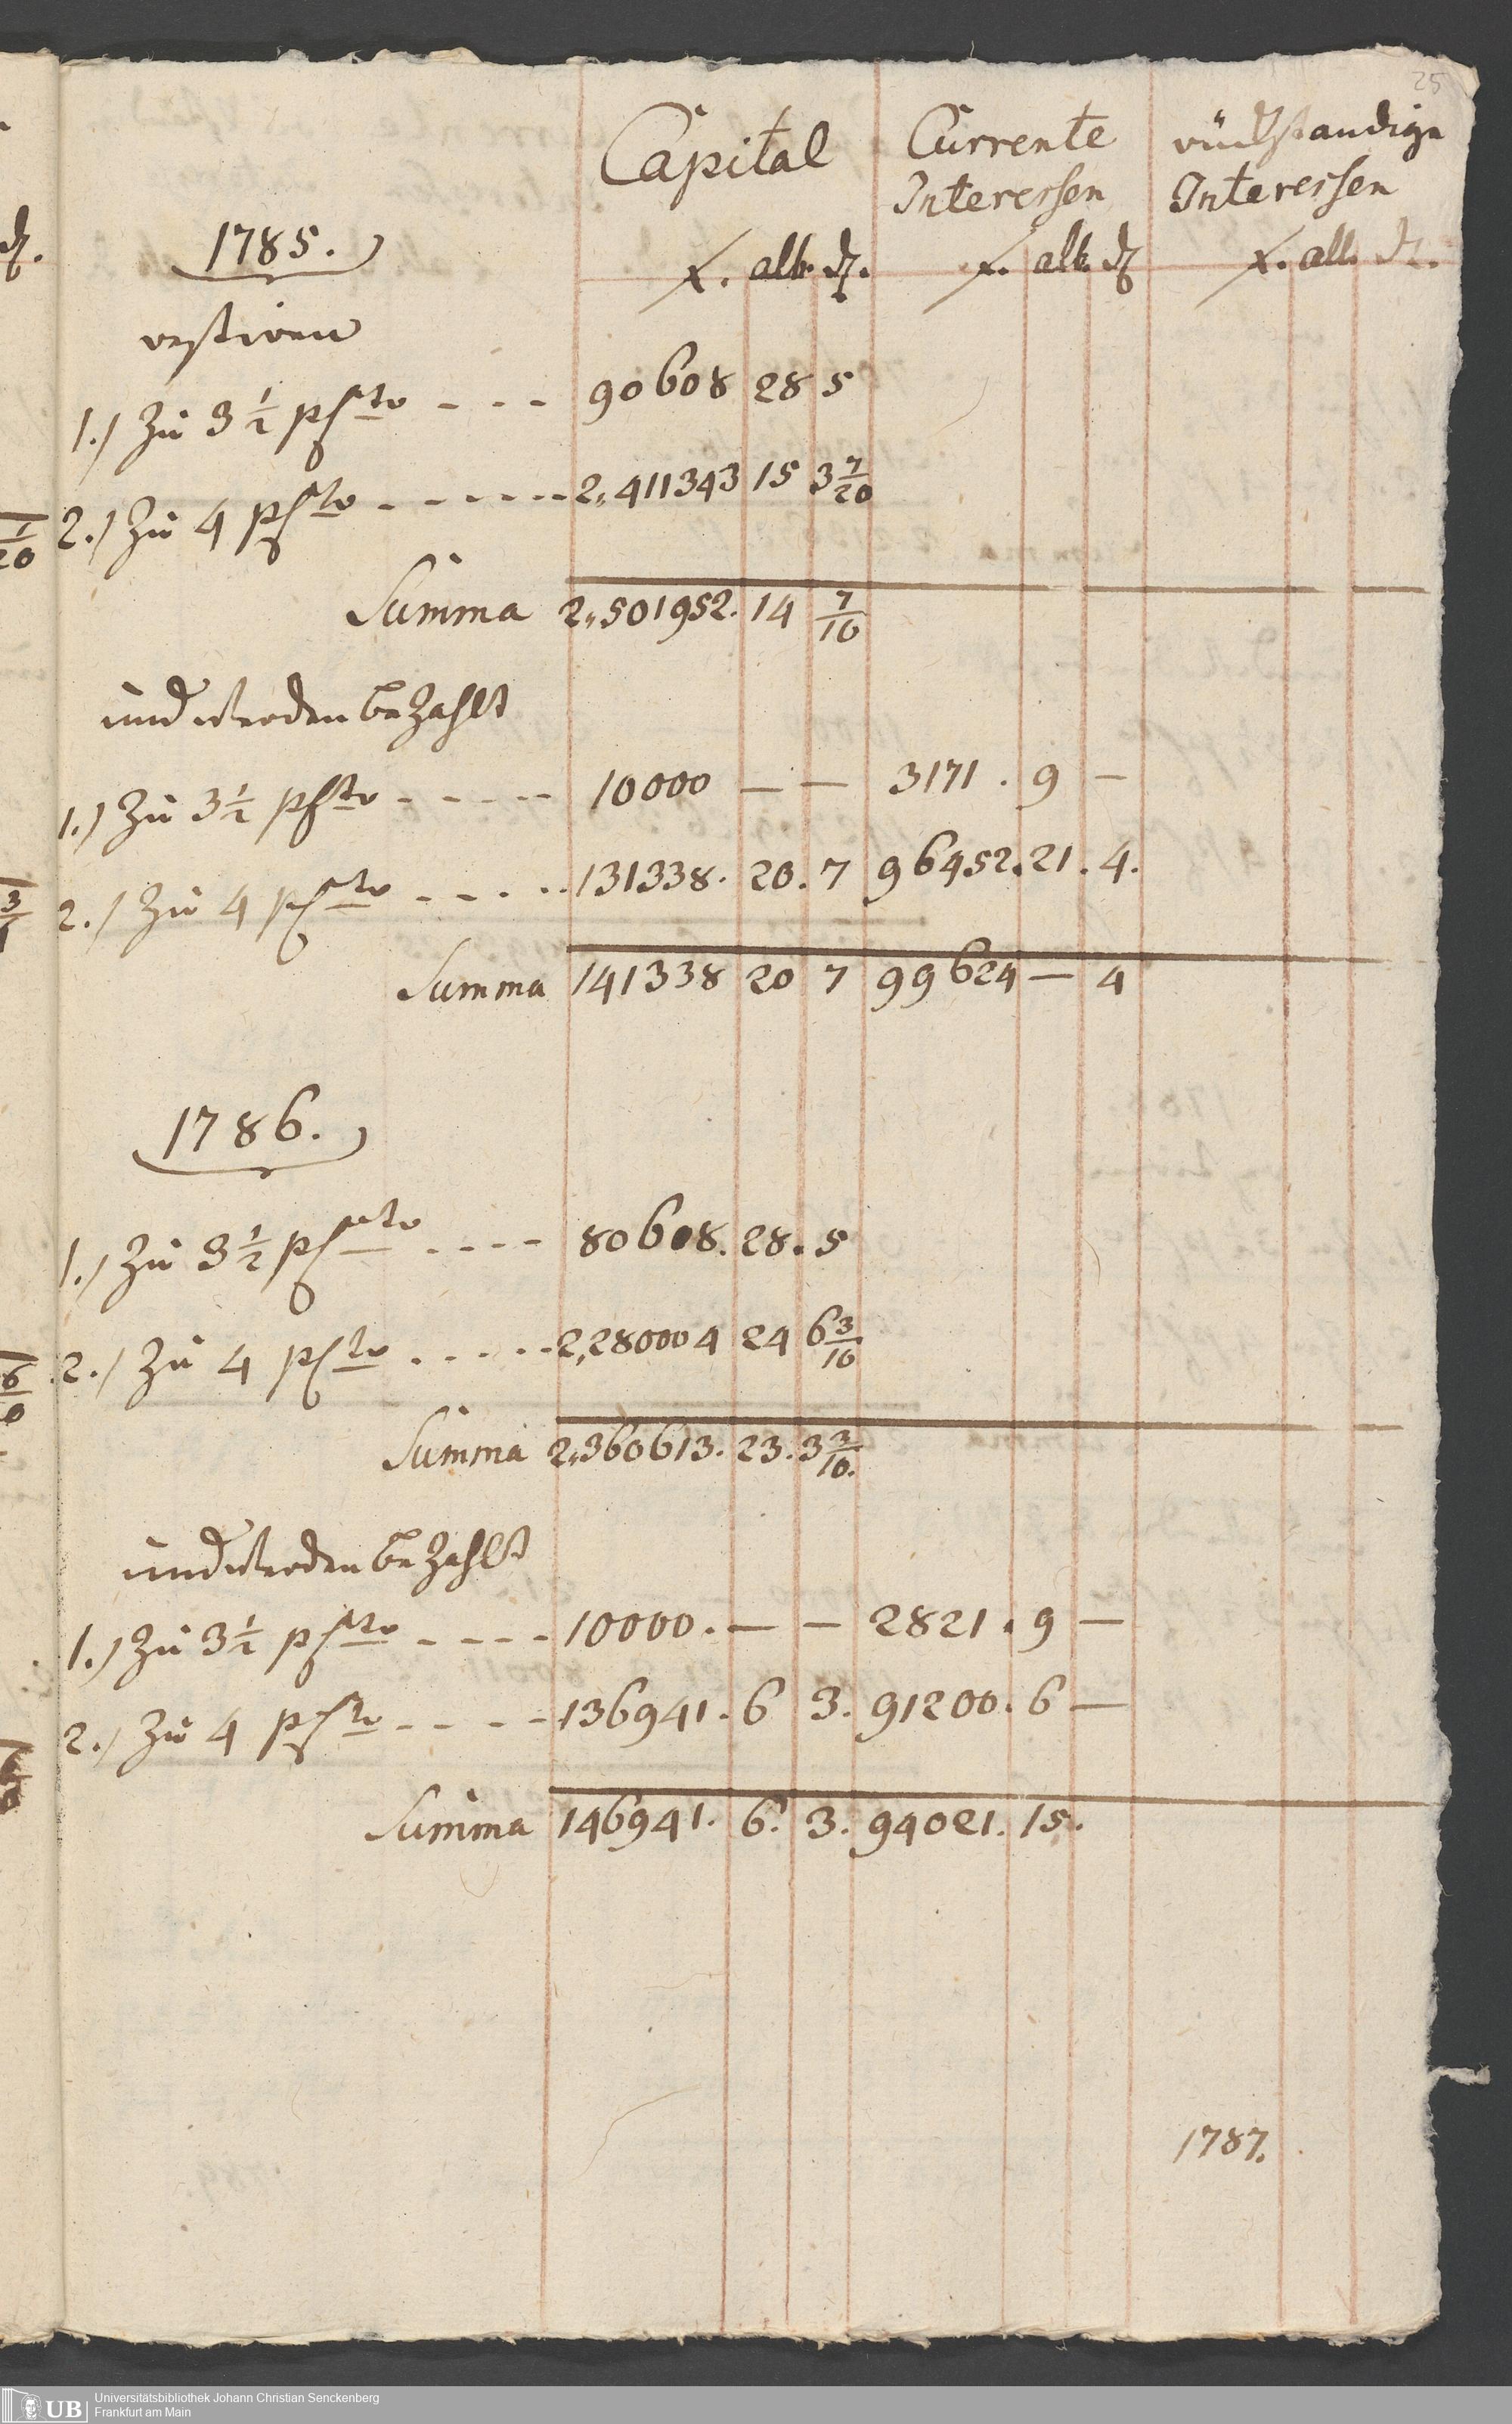 25
Capital
Currente Interessen
rückständige Interessen
1785.
f. alb. d. f. alb. d. f. alb. d.
restiren
1.) Zu 3 1/2 pCto - - - 90608 28 5
2.) Zu 4 pCto - - - - - - 2,,411343 15 3 7/20
Summa 2,,501952. 14 7/10
und werden bezahlt
1.) Zu 3 1/2 pCto - - - - - 10000 — — 3171. 9 —
2.) Zu 4 pCto - - - - - 131338. 20. 7 96452. 21. 4.
Summa 141338 20 7 99624 — 4
1786.
1.) Zu 3 1/2 pCto - - - - 80608. 28. 5
2.) Zu 4 pCto - - - - - 2,280004 24 6 3/10
Summa 2,,360613. 23. 3 3/10.
und werden bezahlt
1.) Zu 3 1/2 pCto - - - - - 10000. — — 2821. 9 —
2.) Zu 4 pCto - - - - - 136941. 6 3. 91200. 6 —
Summa 146941. 6. 3. 94021. 15.
1787.
UB
Universitätsbibliothek Johann Christian Senckenberg
Frankfurt am Main